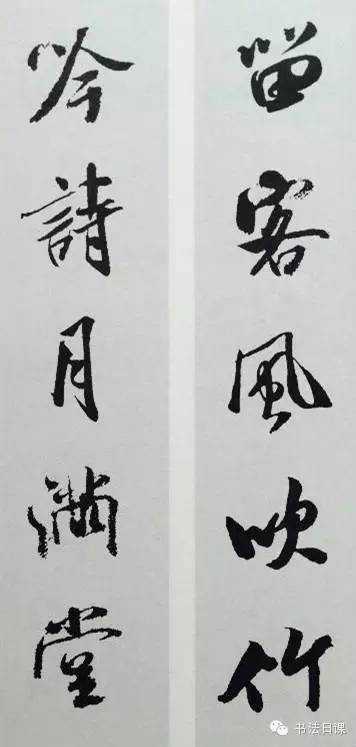 留客風吹竹
吟詩月滿堂
书法日课